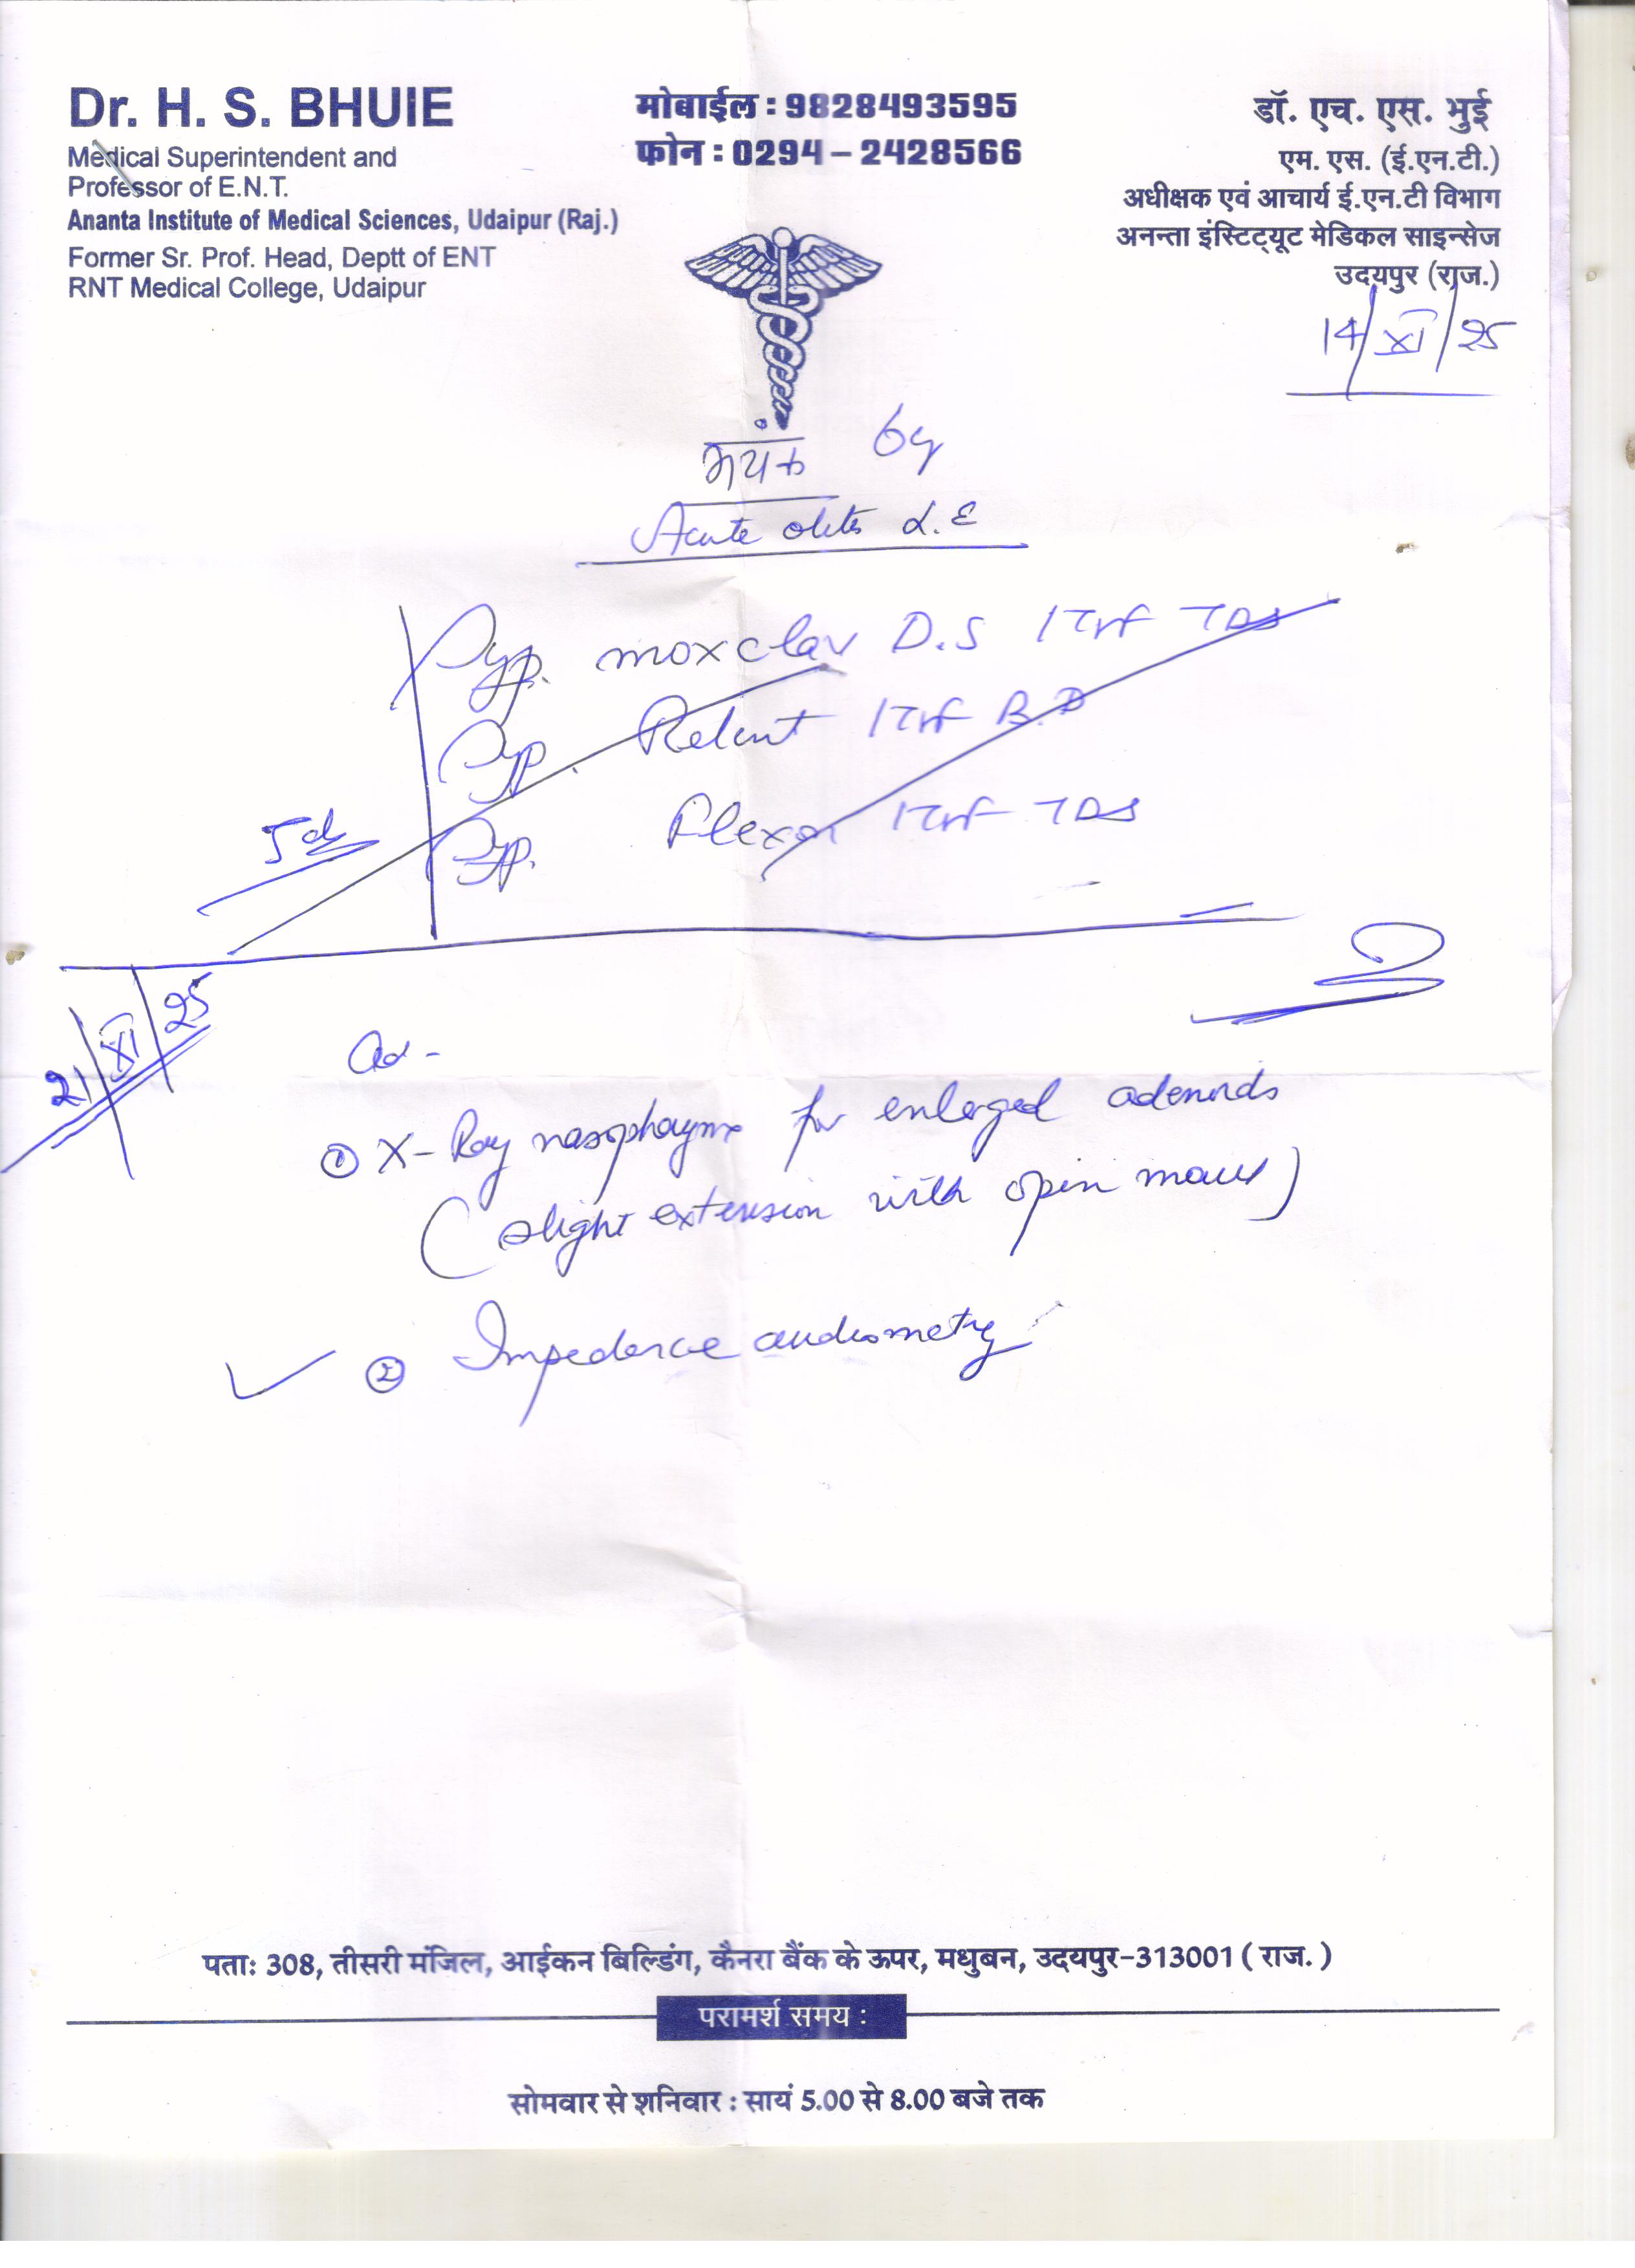 Dr. H. S. BHUIE
Medical Superintendent and
Professor of E.N.T.
Ananta Institute of Medical Sciences, Udaipur (Raj.)
Former Sr. Prof. Head, Deptt of ENT
RNT Medical College, Udaipur
मोबाईल : 9828493595
फोन : 0294 – 2428566
डॉ. एच. एस. भुई
एम. एस. (ई.एन.टी.)
अधीक्षक एवं आचार्य ई.एन.टी विभाग
अनन्ता इंस्टिट्यूट मेडिकल साइन्सेज
उदयपुर (राज.)
14/XI/25
मयंक 6y
Acute otitis L.E
Syp. moxclav D.S 1 TSF TDS
Syp. Relent 1 TSF B.D
Syp. Flexon 1 TSF TDS
5d
21/XI/25
Ad -
① X-Ray nasopharynx for enlarged adenoids
(slight extension with open mouth)
② Impedence audiometry
पता: 308, तीसरी मंजिल, आईकन बिल्डिंग, कैनरा बैंक के ऊपर, मधुबन, उदयपुर-313001 ( राज. )
परामर्श समय :
सोमवार से शनिवार : सायं 5.00 से 8.00 बजे तक